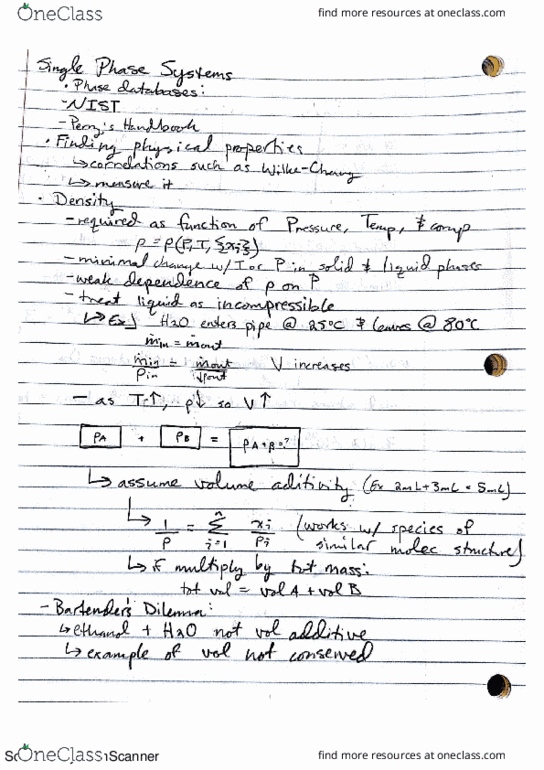 OneClass
find more resources at oneclass.com
Single Phase Systems
• Phase databases:
- NIST
- Perry's Handbook
• Finding physical properties
↳ correlations such as Wilke-Chang
↳ measure it
• Density
- required as function of Pressure, Temp, & comp
- ρ = ρ(P, T, {xi})
- minimal change w/ T or P in solid & liquid phases
- weak dependence of ρ on P
- treat liquid as incompressible
↳ Ex] H2O enters pipe @ 25°C & leaves @ 80°C
ṁin = ṁout
ṁin/ρin = ṁout/↓ρout V increases
- as T↑, ρ↓ so V↑
ρA + ρB = ρA+B=?
↳ assume volume aditivity (Ex 2mL+3mL = 5mL)
↳ 1/ρ = Σ i=1 n xi/ρi (works w/ species of
similar molec structure)
↳ if multiply by tot mass:
tot vol = vol A + vol B
- Bartender's Dilemma:
↳ ethanol + H2O not vol additive
↳ example of vol not conserved
OneClass
Scanner
find more resources at oneclass.com